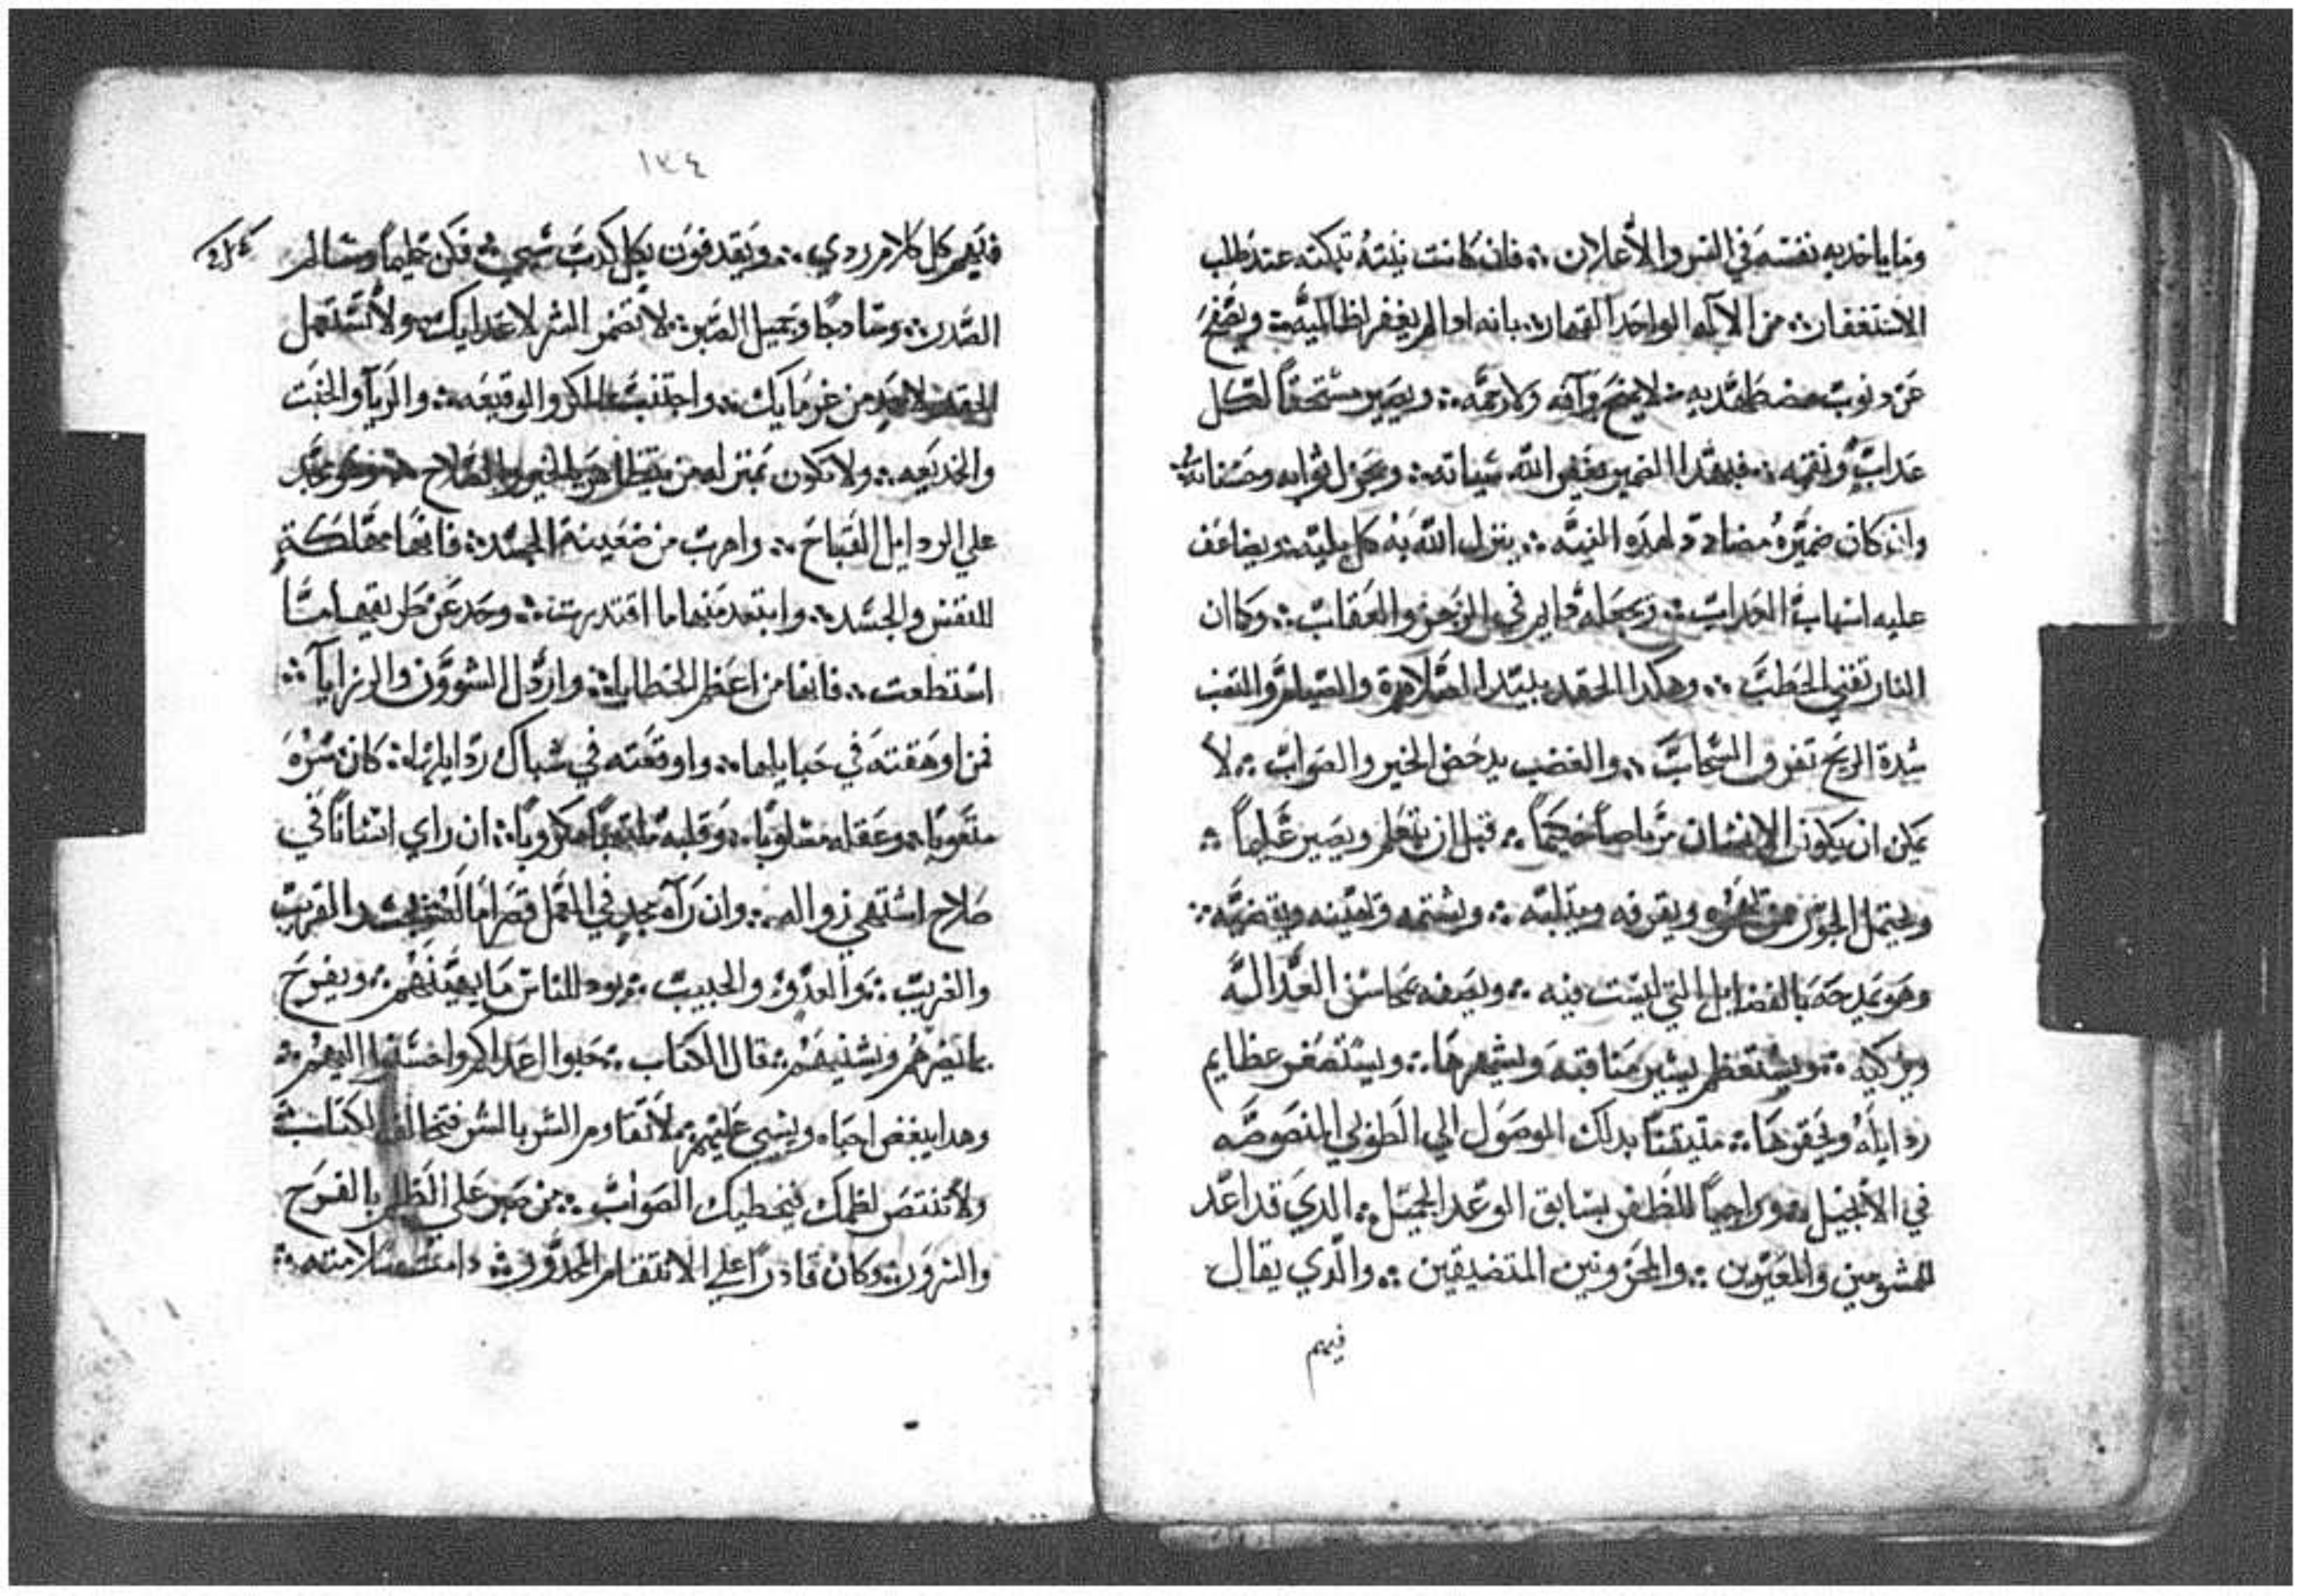 وما ياخد به نفسه في السر والأعلان ؞ فان كانت نيته تبكته عند طلب
الاستغفار ؞ من الاله الواحد القهار ؞ بانه ادا لم يغفر لظالميه ؞ ويصفح
عن دنوب مضطهديه ؞ لا يمنح رآفه ولا رحمه ؞ ويصير مستحقاً لكل
عداب ونقمه ؞ فبهدا الضمير يغفر الله سياته ؞ ويجزل ثوابه وحسناته
وان كان ضميره مضادد لهده النيه ؞ ينزل الله به كل بليه ؞ ويضاعف
عليه اسهاب العداب ؞ ويجعله دايم في الزجر والعقاب ؞ وكما ان
النار تفني الحطب ؞ وهكدا الحقد يبيد الصلاة والصيام والتعب
شدة الريح تفرق السحاب ؞ والغضب يدحض الخير والصواب ؞ لا
يمكن ان يكون الانسان مرتاضاً حكيماً ؞ قبل ان يتعلم ويصير عليماً ؞
ويحتمل الجور ممن يقرفه ويتلبه ؞ ويشتمه ويعيبه ويغضبه ؞
وهو يمدحه بالفضايل التي ليست فيه ؞ ويصفه بمحاسن العداله
ويزكيه ؞ ويستعظم يسير مناقبه ويشهرها ؞ ويستصغر عظايم
ردايله ويحقرها ؞ متيقناً بدلك الوصول الي الطوبي المنصوصه
في الأنجيل ؞ وراجياً للظفر بسابق الوعد الجميل ؞ الدي قد اعد
للمشومين والمعيرين ؞ والمحزونين المتضيقين ؞ والدي يقال
فيهم
١٣٤
فيهم كل كلام ردي ؞ ويقدفون بكل كدب شي ؞ فكن حليماً وسالم
الصدر ؞ وسادجاً وجميل الصبر ؞ لا تضمر الشر لاعدايك ؞ ولا تستعمل
الحقد لاحد من غرمايك ؞ واجتنب المكر والوقيعه ؞ والريآ والخبت
والخديعه ؞ ولا تكون بمنزله من يتظاهر بالخير والصلاح ؞
علي الردايل القباح ؞ واهرب من ضغينة الحسد ؞ فانها مهلكة
للنفس والجسد ؞ وابتعد منها ما اقتدرت ؞ وحد عن طريقها مهما
استطعت ؞ فانها من اعظم الخطايا ؞ واردل الشوون والرزايآ ؞
فمن اوهقته في حبايلها ؞ واوقعته في شباك ردايلها ؞ كان سره
متعوباً ؞ وعقله مسلوباً ؞ وقلبه مكروباً ؞ ان راي انساناً في
صلاح اشتهي زواله ؞ وان رآه مجد في العمل القريب
والغريب ؞ والعدو والحبيب ؞ يود للناس ما يهينهم ؞ ويفرح
بما يضرهم ويشنيهم ؞ قال الكتاب ؞ حبوا اعداكم واحسنوا اليهم ؞
وهدا يبغض احباه ويسي عليهم ؞ لا تقاوم الشر بالشر فتخالف الكتاب
ولا تنتصر لظلمك فيخطيك الصواب ؞ من صبر علي الظلم بالفرح
والسرور ؞ وكان قادراً علي الانتقام ؞ دامت سلامته ؞